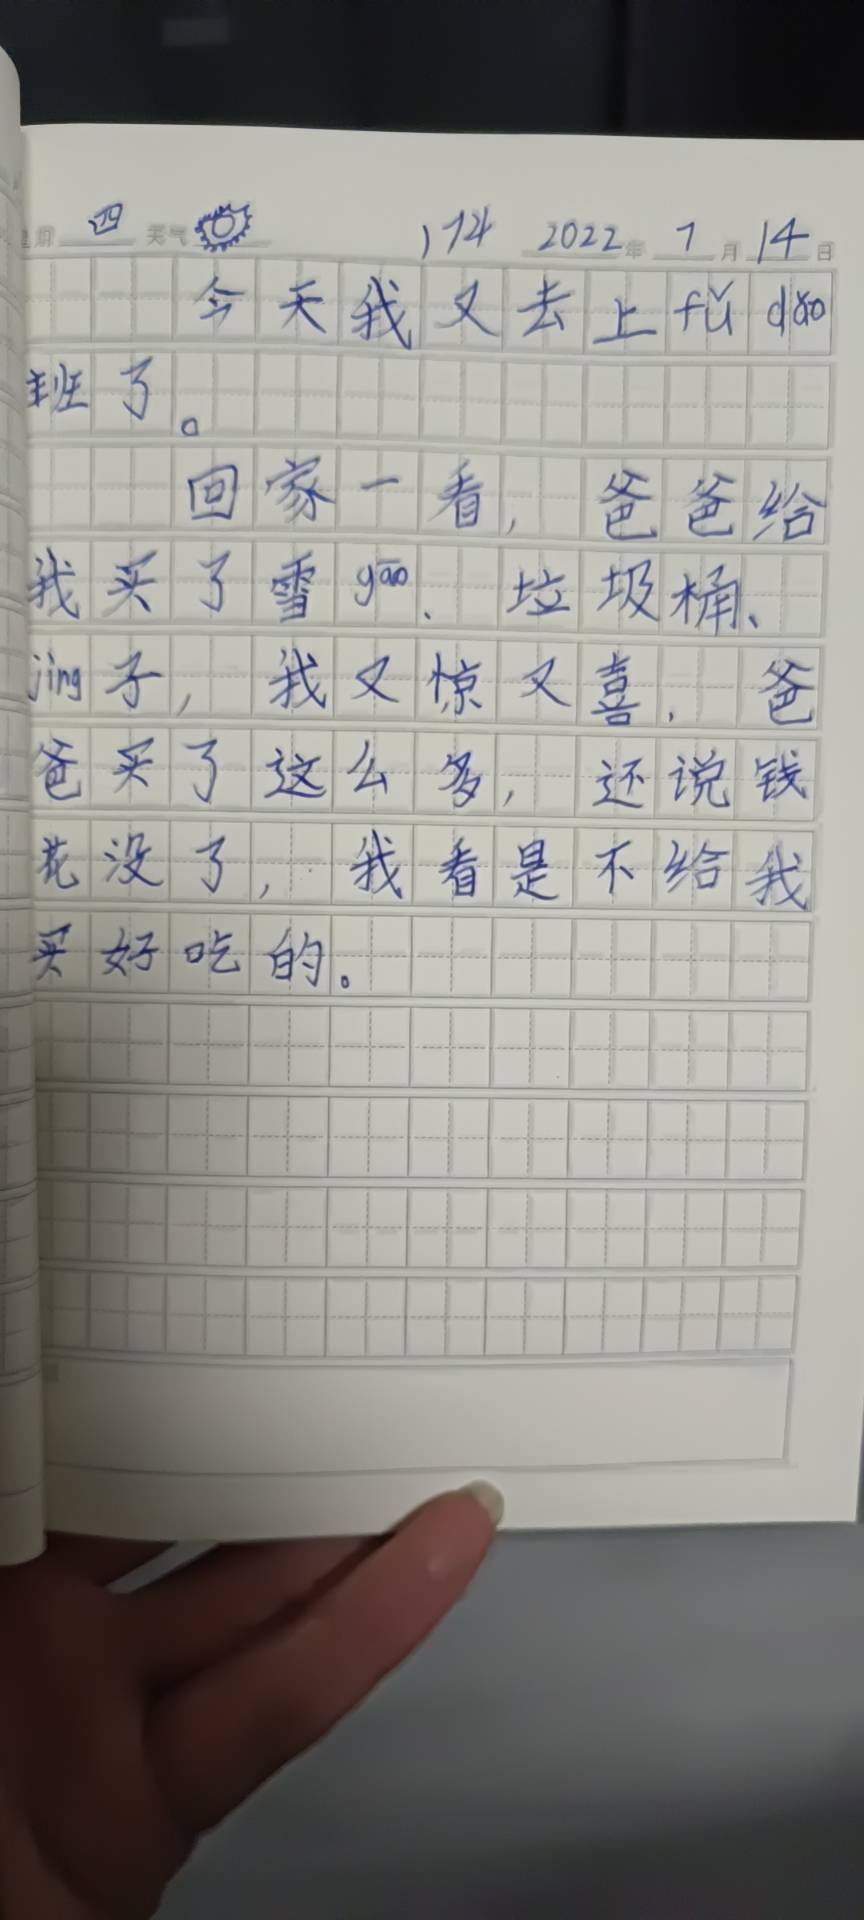 星期 四 天气 174 2022年 7月 14日
今天我又去上fǔ dǎo
班了。
回家一看,爸爸给
我买了雪gāo、垃圾桶、
jìng子,我又惊又喜,爸
爸买了这么多,还说钱
花没了,我看是不给我
买好吃的。